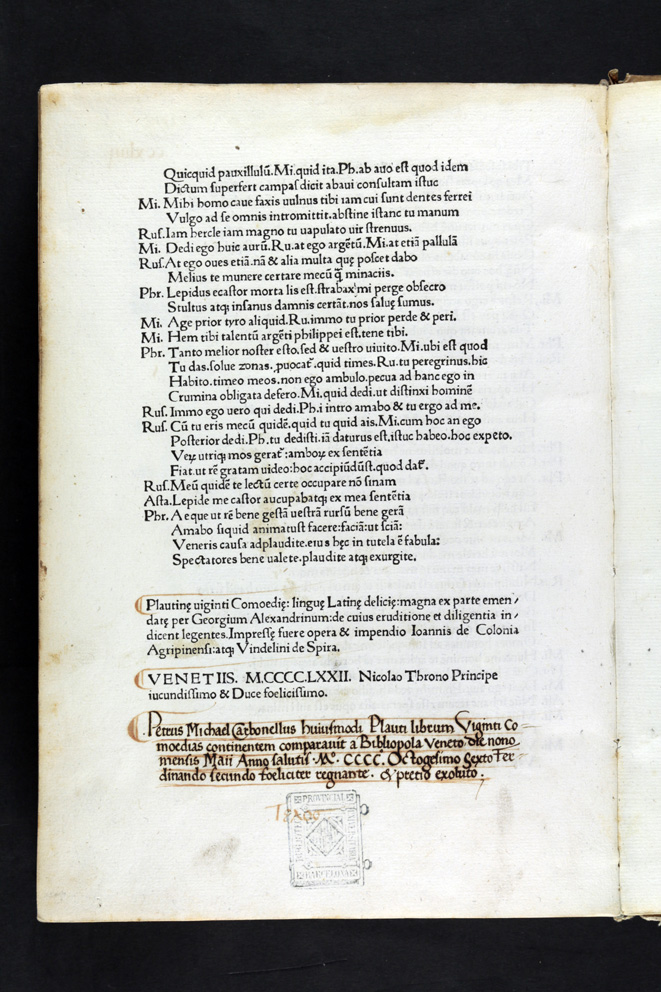 Quicquid pauxillulū.Mi.quid ita.Ph.ab auo est quod idem
Dictum superfert campas dicit abaui consultam istuc
Mi. Mihi homo caue faxis uulnus tibi iam cui sunt dentes ferrei
Vulgo ad se omnis intromittit.abstine istanc tu manum
Rus.Iam hercle iam magno tu uapulato uir strenuus.
Mi. Dedi ego huic aurū.Ru.at ego argētū.Mi.at etiā pallulā
Rus.At ego oues etiā.nā & alia multa quę poscet dabo
Melius te munere certare mecū q̄ minaciis.
Phr. Lepidus ecastor morta lis est.strabax mi perge obsecro
Stultus atq; insanus damnis certāt.nos saluę sumus.
Mi. Age prior tyro aliquid.Ru.immo tu prior perde & peri.
Mi. Hem tibi talentū argēti philippei est.tene tibi.
Phr. Tanto melior noster esto.sed & uestro uiuito.Mi.ubi est quod
Tu das.solue zonas. ꝓuocat᷒.quid times.Ru.tu peregrinus.hic
Habito.timeo meos.non ego ambulo.pecua ad hanc ego in
Crumina obligata defero.Mi.quid dedi.ut distinxi hominē
Rus. Immo ego uero qui dedi.Ph.i intro amabo & tu ergo ad me.
Rus. Cū tu eris mecū quidē.quid tu quid ais.Mi.cum hoc an ego
Posterior dedi.Ph.tu dedisti.iā daturus est.istuc habeo.hoc expeto.
Veꝝ utriq; mos gerat᷒:amboꝝ ex sentētia
Fiat.ut rē gratam uideo:hoc accipiūdūst.quod daf᷒.
Rus.Meū quidē te lectū certe occupare nō sinam
Asta.Lepide me castor aucupabatq; ex mea sentētia
Phr. Aeque ut rē bene gestā uestrā rursū bene gerā
Amabo siquid animatust facere:faciā:ut sciā:
Veneris causa adplaudite.eius hęc in tutela ē fabula:
Spectatores bene ualete.plaudite atq; exurgite.
Plautinę uiginti Comoedię: linguę Latinę delicię:magna ex parte emen/
datę per Georgium Alexandrinum:de cuius eruditione et diligentia in/
dicent legentes.Impressę fuere opera & impendio Ioannis de Colonia
Agripinensi:atq; Vindelini de Spira.
VENETIIS. M.CCCC.LXXII. Nicolao Throno Principe
iucundissimo & Duce foelicissimo.
Petrus Michael Carbonellus huiusmodi Plauti librum Viginti Co
moedias continentem comparauit a Bibliopola Veneto die nono
mensis Maii Anno salutis .Mº. CCCC. Octogesimo Sexto Fer
dinando secundo foeliciter regnante. & pretio exoluto.
PROVINCIAL